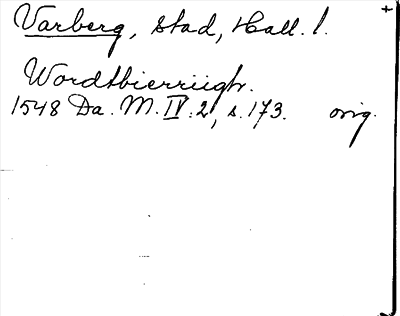 Varberg, stad, Hall. l. +
Wordtbierriigh.
1548 Da. M. IV:2, s. 173. orig.